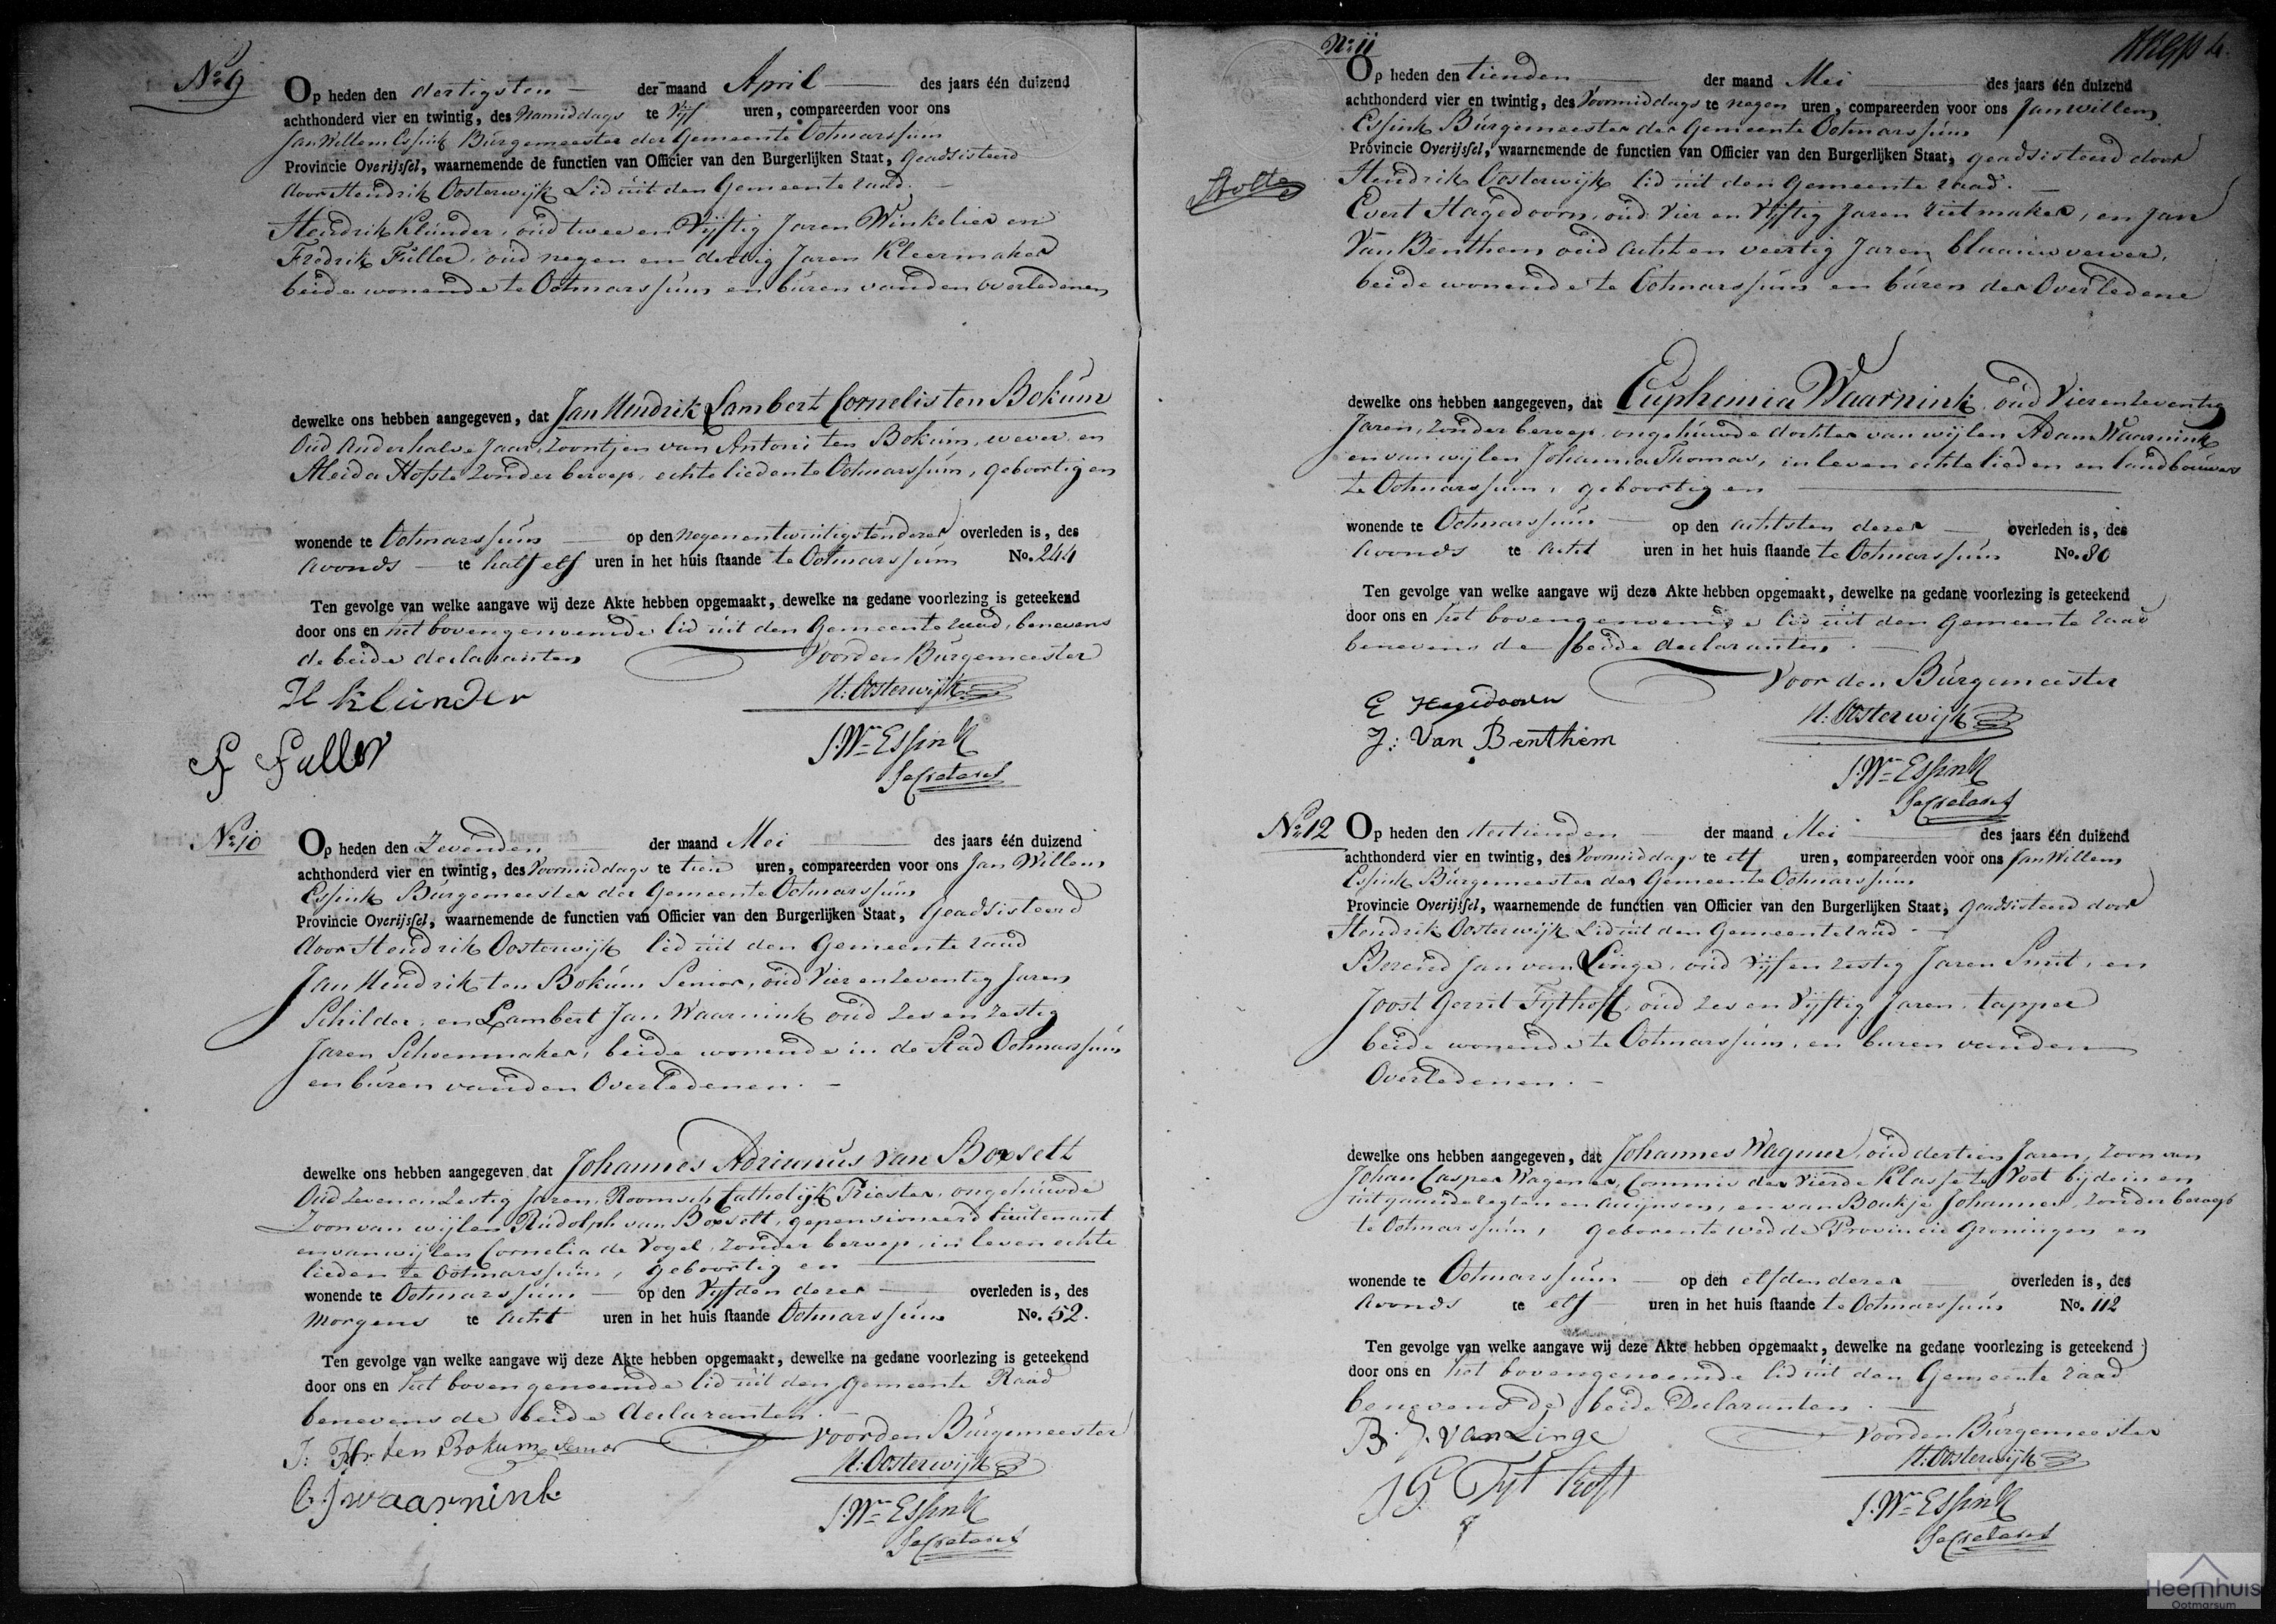 No 9
Op heden den dertigsten der maand April des jaars één duizend
achthonderd vier en twintig, des Namiddags te Vijf uren, compareerden voor ons
Jan Willem Essink Burgemeester der Gemeente Ootmarssum
Provincie Overijssel, waarnemende de functien van Officier van den Burgerlijken Staat, geadsisteerd
door Hendrik Oosterwijk Lid uit den Gemeente raad.
Hendrik Klunder, oud twee en Vijftig Jaren Winkelier en
Fredrik Fuller, oud negen en dertig Jaren Kleermaker
beide wonende te Ootmarssum en buren van den overledenen
dewelke ons hebben aangegeven, dat Jan Hendrik Lambert Cornelis ten Bokum
Oud Anderhalve Jaar, Zoontjen van Antoni ten Bokum, wever en
Aleida Hofste zonder beroep, echtelieden te Ootmarssum, geboortig en
wonende te Ootmarssum op den negenentwintigsten dezer overleden is, des
Avonds te half elf uren in het huis staande te Ootmarssum No. 244
Ten gevolge van welke aangave wij deze Akte hebben opgemaakt, dewelke na gedane voorlezing is geteekend
door ons en het bovengenoemde lid uit den Gemeente raad, benevens
de beide declaranten Voor den Burgemeester
H Klunder H: Oosterwijk
F Fuller J. Wm Essink
Secretaris
No 10
Op heden den Zevenden der maand Mei des jaars één duizend
achthonderd vier en twintig, des Voormiddags te tien uren, compareerden voor ons Jan Willem
Essink Burgemeester der Gemeente Ootmarssum
Provincie Overijssel, waarnemende de functien van Officier van den Burgerlijken Staat, Geadsisteerd
door Hendrik Oosterwijk lid uit den Gemeente raad
Jan Hendrik ten Bokum Senior, oud Vier en Zeventig Jaren
Schilder, en Lambert Jan Waarnink oud zes en zestig
Jaren Schoenmaker, beide wonende in de Stad Ootmarssum
en buren van den Overledenen.
dewelke ons hebben aangegeven dat Johannes Adrianus van Boxselt
Oud Zeven en Zestig Jaren, Roomsch Catholijk Priester, ongehuwde
Zoon van wijlen Rudolph van Boxselt, gepensioneerd lieutenant
en van wijlen Cornelia de Vogel, zonder beroep, in leven echte
lieden te Ootmarssum, geboortig en
wonende te Ootmarssum op den Vijfden dezer overleden is, des
Morgens te acht uren in het huis staande Ootmarssum No. 52.
Ten gevolge van welke aangave wij deze Akte hebben opgemaakt, dewelke na gedane voorlezing is geteekend
door ons en het bovengenoemde lid uit den Gemeente Raad
benevens de beide declaranten.
Voor den Burgemeester
J: Hr. ten Bokum Senior H: Oosterwijk
L J waarnink J. Wm Essink
Secretaris
No 11
Op heden den tienden der maand Mei des jaars één duizend
achthonderd vier en twintig, des Voormiddags te negen uren, compareerden voor ons Jan Willem
Essink Burgemeester der Gemeente Ootmarssum
Provincie Overijssel, waarnemende de functien van Officier van den Burgerlijken Staat, geadsisteerd door
Hendrik Oosterwijk lid uit den Gemeente raad.
Evert Hagedoorn, oud Vier en Vijftig Jaren rietmaker, en Jan
Van Benthem oud acht en veertig Jaren blaauwverver,
beide wonende te Ootmarssum en buren der Overledene
dewelke ons hebben aangegeven, dat Euphemia Waarnink, oud Vierenzeventig
Jaren, zonder beroep, ongehuwde dochter van wijlen Adam Waarnink
en van wijlen Johanna Thomas, in leven echtelieden en landbouwers
te Ootmarssum, geboortig en
wonende te Ootmarssum op den achtsten dezer overleden is, des
Avonds te acht uren in het huis staande te Ootmarssum No. 80
Ten gevolge van welke aangave wij deze Akte hebben opgemaakt, dewelke na gedane voorlezing is geteekend
door ons en het bovengenoemde lid uit den Gemeente raad
benevens de beide declaranten.
Voor den Burgemeester
E Hagedoorn H: Oosterwijk
J: Van Benthem J. Wm Essink
Secretaris
No 12
Op heden den dertienden der maand Mei des jaars één duizend
achthonderd vier en twintig, des Voormiddags te elf uren, compareerden voor ons Jan Willem
Essink Burgemeester der Gemeente Ootmarssum
Provincie Overijssel, waarnemende de functien van Officier van den Burgerlijken Staat, geadsisteerd door
Hendrik Oosterwijk Lid uit den Gemeente raad
Berend Jan van Linge, oud Vijf en zestig Jaren Smit, en
Joost Gerrit Tijthoff, oud zes en Vijftig Jaren, tapper
beide wonende te Ootmarssum, en buren van den
Overledenen.
dewelke ons hebben aangegeven, dat Johannes Wagener, oud dertien Jaren, Zoon van
Johan Casper Wagener, Commis der Vierde Klasse te Voet bij de in en
uitgaande regten en accijnsen, en van Baukje Johannes, zonder beroep
te Ootmarssum, geboren te Wedde Provincie Groningen en
wonende te Ootmarssum op den elfden dezer overleden is, des
Avonds te elf uren in het huis staande te Ootmarssum No. 112
Ten gevolge van welke aangave wij deze Akte hebben opgemaakt, dewelke na gedane voorlezing is geteekend
door ons en het bovengenoemde lid uit den Gemeente raad
benevens de beide Declaranten.
Voor den Burgemeester
B. J. van Linge H: Oosterwijk
J G Tijthoff J. Wm Essink
Secretaris
Heemhuis
Ootmarsum